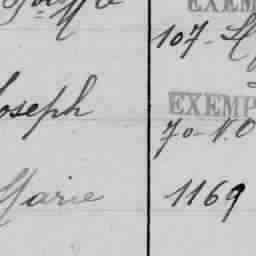 EXEM
107-
Joseph
EXEMP
70-N.O
Marie 1169